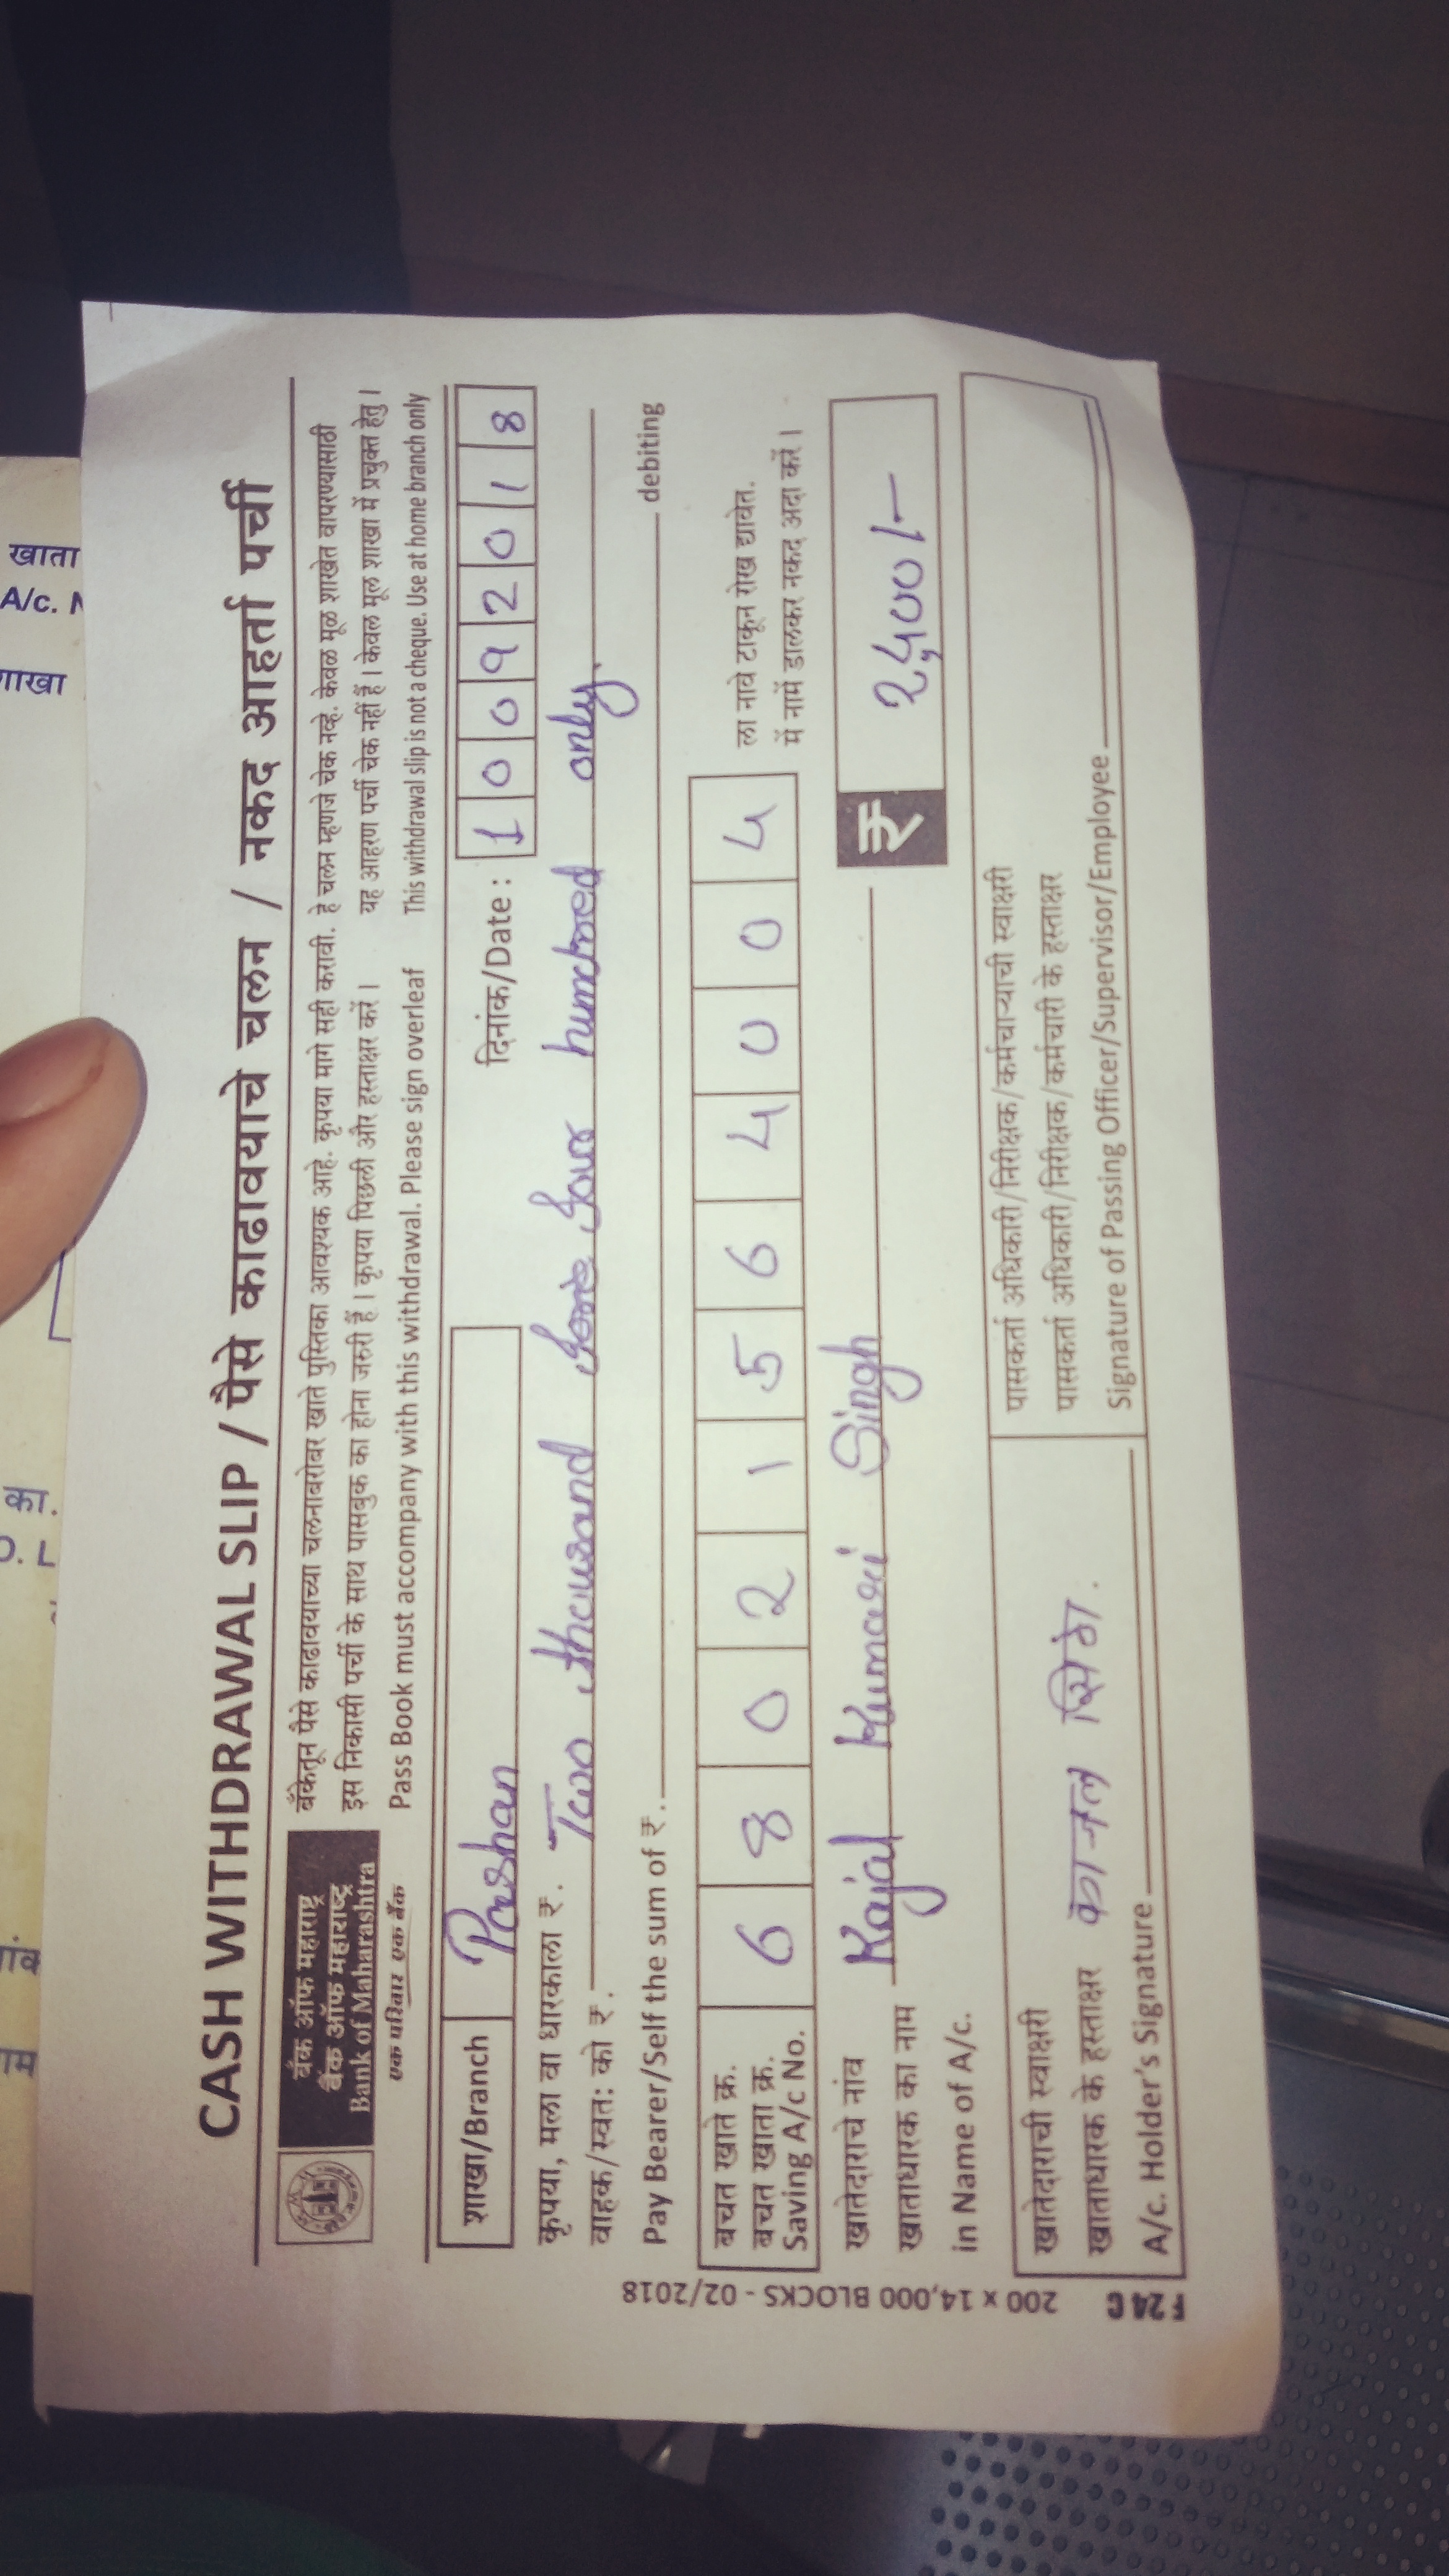 खाता
A/c. N
शाखा
का.
O. L
CASH WITHDRAWAL SLIP / पैसे काढावयाचे चलन / नकद आहर्ता पर्ची
बँक ऑफ महाराष्ट्र
बैंक ऑफ महाराष्ट्र
Bank of Maharashtra
एक परिवार एक बैंक
बँकेतून पैसे काढावयाच्या चलनाबरोबर खाते पुस्तिका आवश्यक आहे. कृपया मागे सही करावी. हे चलन म्हणजे चेक नव्हे. केवळ मूळ शाखेत वापरण्यासाठी
इस निकासी पर्ची के साथ पासबुक का होना जरुरी हैं । कृपया पिछली और हस्ताक्षर करें । यह आहरण पर्ची चेक नहीं हैं । केवल मूल शाखा में प्रयुक्त हेतु ।
Pass Book must accompany with this withdrawal. Please sign overleaf This withdrawal slip is not a cheque. Use at home branch only
शाखा/Branch Pashan दिनांक/Date : 10092018
कृपया, मला वा धारकाला ₹. Two thousand four hundred only.
वाहक/स्वतः को ₹.
Pay Bearer/Self the sum of ₹. debiting
बचत खाते क्र.
बचत खाता क्र.
Saving A/c No. 68021564004
ला नावे टाकून रोख द्यावेत.
में नामें डालकर नकद अदा करें ।
खातेदाराचे नांव
खाताधारक का नाम
in Name of A/c. Kajal Kumari Singh
₹ 2500/-
खातेदाराची स्वाक्षरी
खाताधारक के हस्ताक्षर काजल
A/c. Holder's Signature
पासकर्ता अधिकारी/निरीक्षक/कर्मचाऱ्याची स्वाक्षरी
पासकर्ता अधिकारी/निरीक्षक/कर्मचारी के हस्ताक्षर
Signature of Passing Officer/Supervisor/Employee
F 24 C 200 x 14,000 BLOCKS - 02/2018